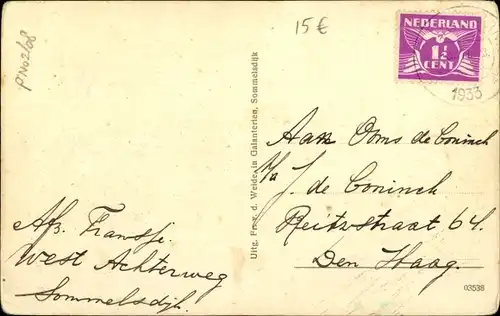 PNo2/68
15€
NEDERLAND
1½
CENT
1933
Uitg. Fr. v. d. Weide, in Galanterien, Sommelsdijk
Aan Ooms de Coninck
J. de Coninck
Reitzstraat 64.
Den Haag.
Afz. Fransje.
West Achterweg
Sommelsdijk.
03538